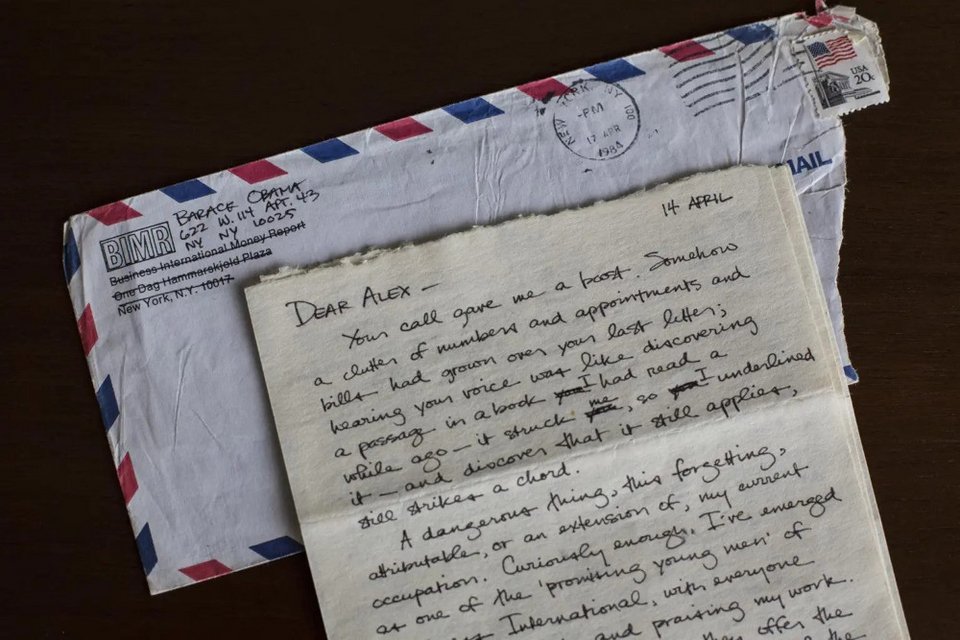 BARACK OBAMA
622 W. 114 APT. 43
NY NY 10025
BIMR
Business International Money Report
One Dag Hammarskjold Plaza
New York, N.Y. 10017
NEW YORK, NY 100
-PM
17 APR
1984
USA
20c
MAIL
14 APRIL
DEAR ALEX —
Your call gave me a boost. Somehow
a clutter of numbers and appointments and
bills had grown over your last letter;
hearing your voice was like discovering
a passage in a book you I had read a
while ago — it struck you me, so you I underlined
it — and discover that it still applies,
still strikes a chord.
A dangerous thing, this forgetting,
attributable, or an extension of, my current
occupation. Curiously enough, I've emerged
as one of the 'promising young men' of
International, with everyone
and praising my work.
they offer the
the